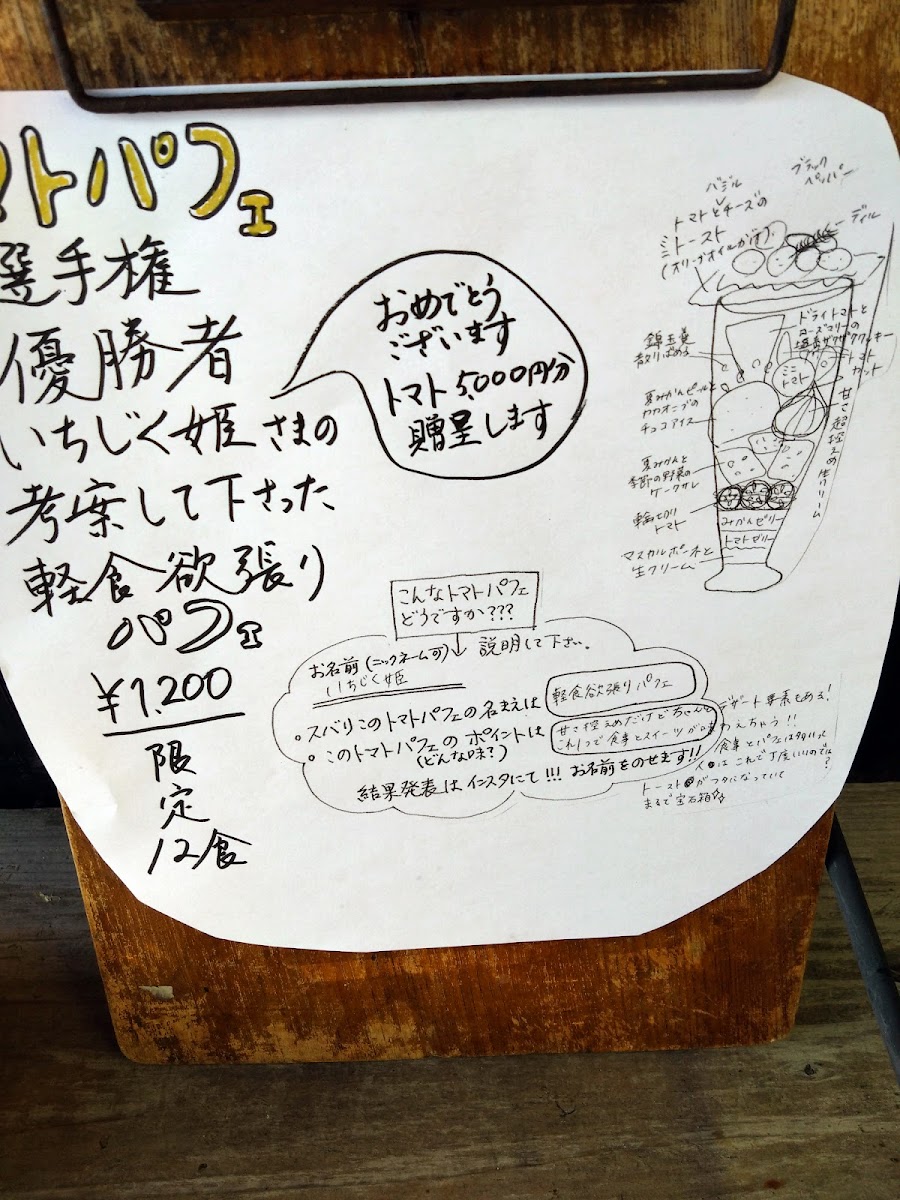 トパフェ
選手権
優勝者
いちじく姫さまの
考案して下さった
軽食欲張り
パフェ
¥1,200
限
定
12食
おめでとう
ございます
トマト5,000円分
贈呈します
バジル
ブラック
ペッパー
トマトとチーズの
ミートースト
(オリーブオイルかけ)
ディル
錦玉羹
散りばめる
ドライトマトと
ローズマリーの
クッキー
トマト
カット
ミニ
トマト
夏みかんピールと
カカオニブの
チョコアイス
甘さ超控えめ生クリーム
夏みかんと
季節の野菜の
ケークサレ
輪切り
トマト
みかんゼリー
トマトゼリー
マスカルポーネと
生クリーム
こんなトマトパフェ
どうですか???
説明して下さい。
お名前(ニックネーム可)
いちじく姫
。ズバリこのトマトパフェの名まえは
軽食欲張りパフェ
。このトマトパフェのポイントは
(どんな味?)
甘さ控えめだけどちゃんとデザート要素もある!
これ1つで食事とスイーツが味わえちゃう!!
食事とパフェは
人はこれで丁度いいのでは?
トーストがフタになっていて
まるで宝石箱
結果発表はインスタにて!!! お名前をのせます!!